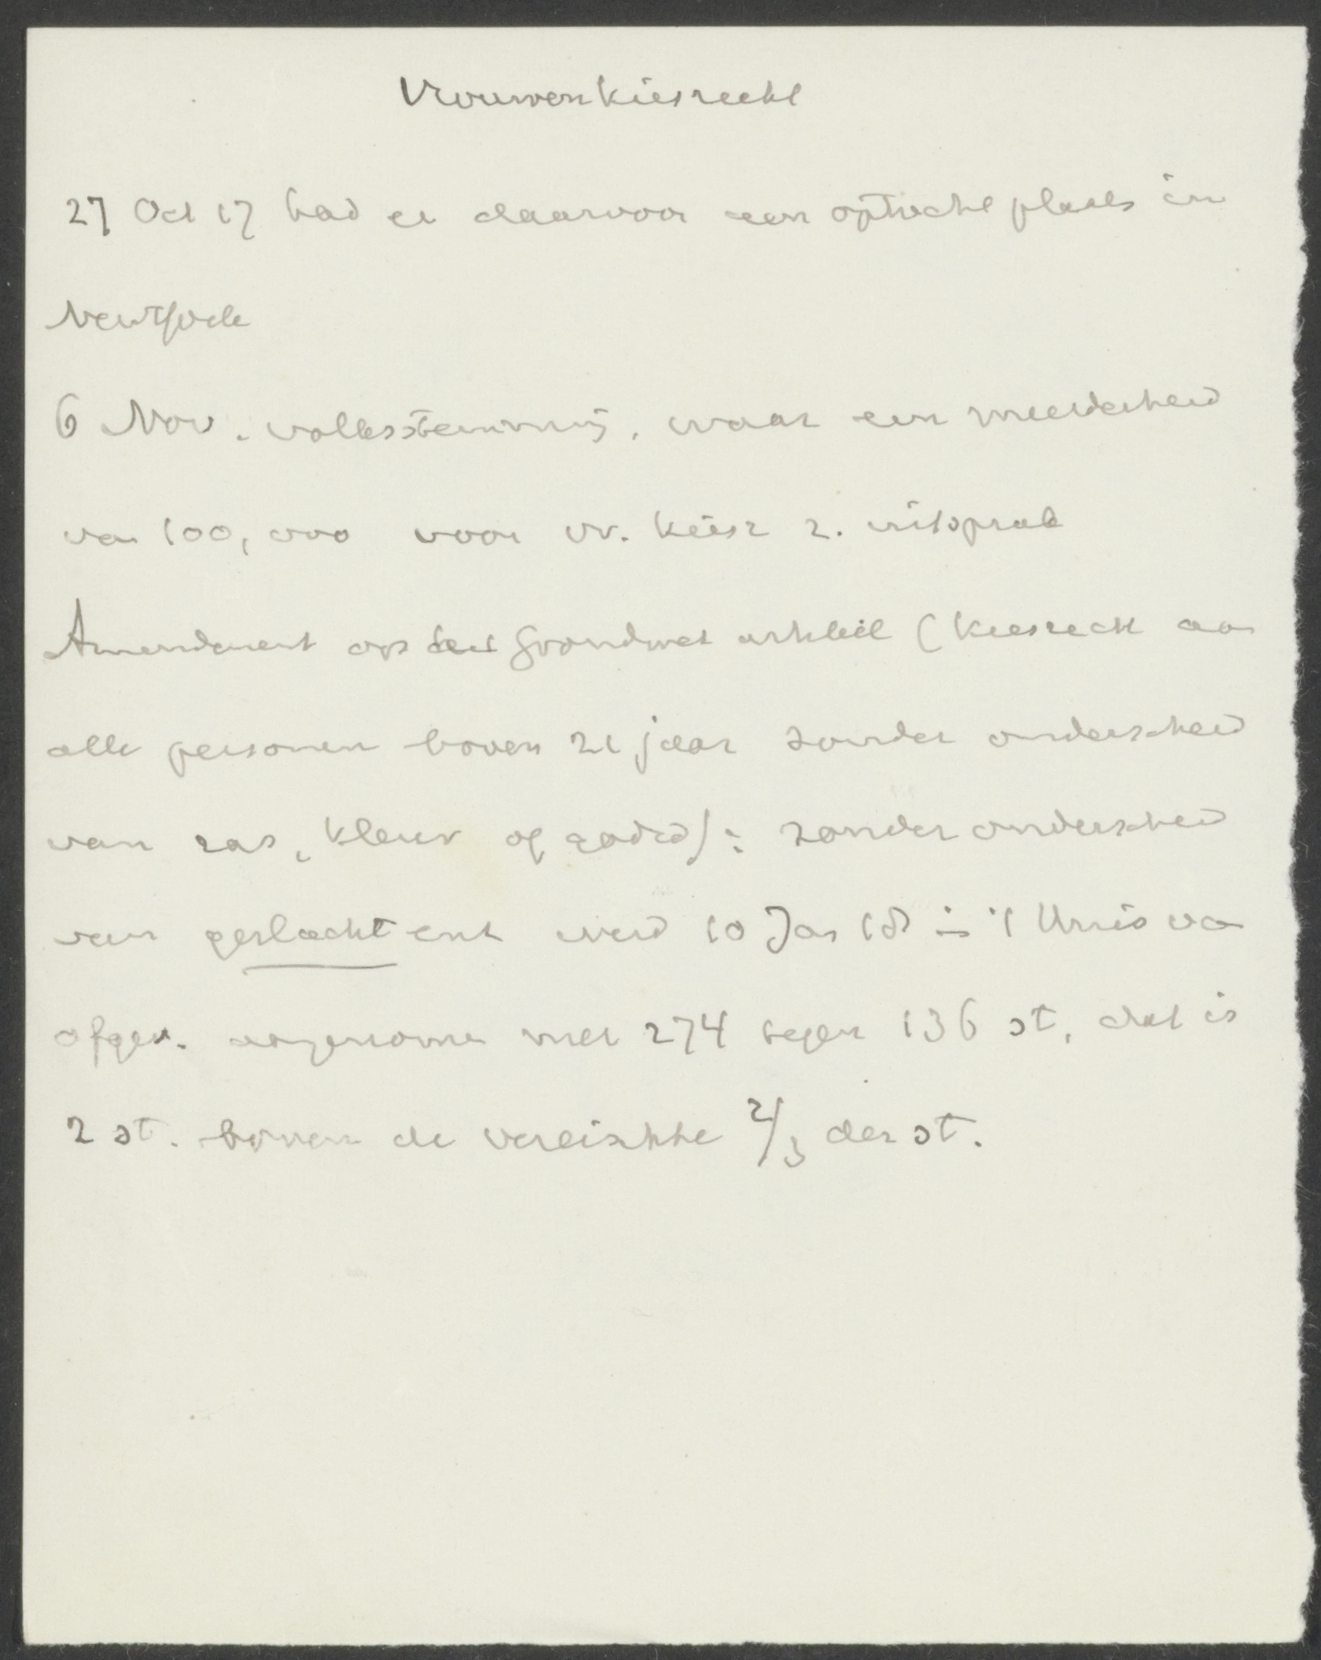 Vrouwenkiesrecht
27 Oct 17 had er daarvoor een optocht plaats in
New York
6 Nov. volksstemming, waar een meerderheid
van 100,000 voor vr. kiesr z. uitsprak
Amendement op het grondwet artikel (kiesrecht aan
alle personen boven 21 jaar zonder onderscheid
van ras, kleur of godsd): zonder onderscheid
van geslacht enz werd 10 Jan 18 in 't Huis van
afgev. aangenomen met 274 tegen 136 st, dat is
2 st. boven de vereischte 2/3 der st.